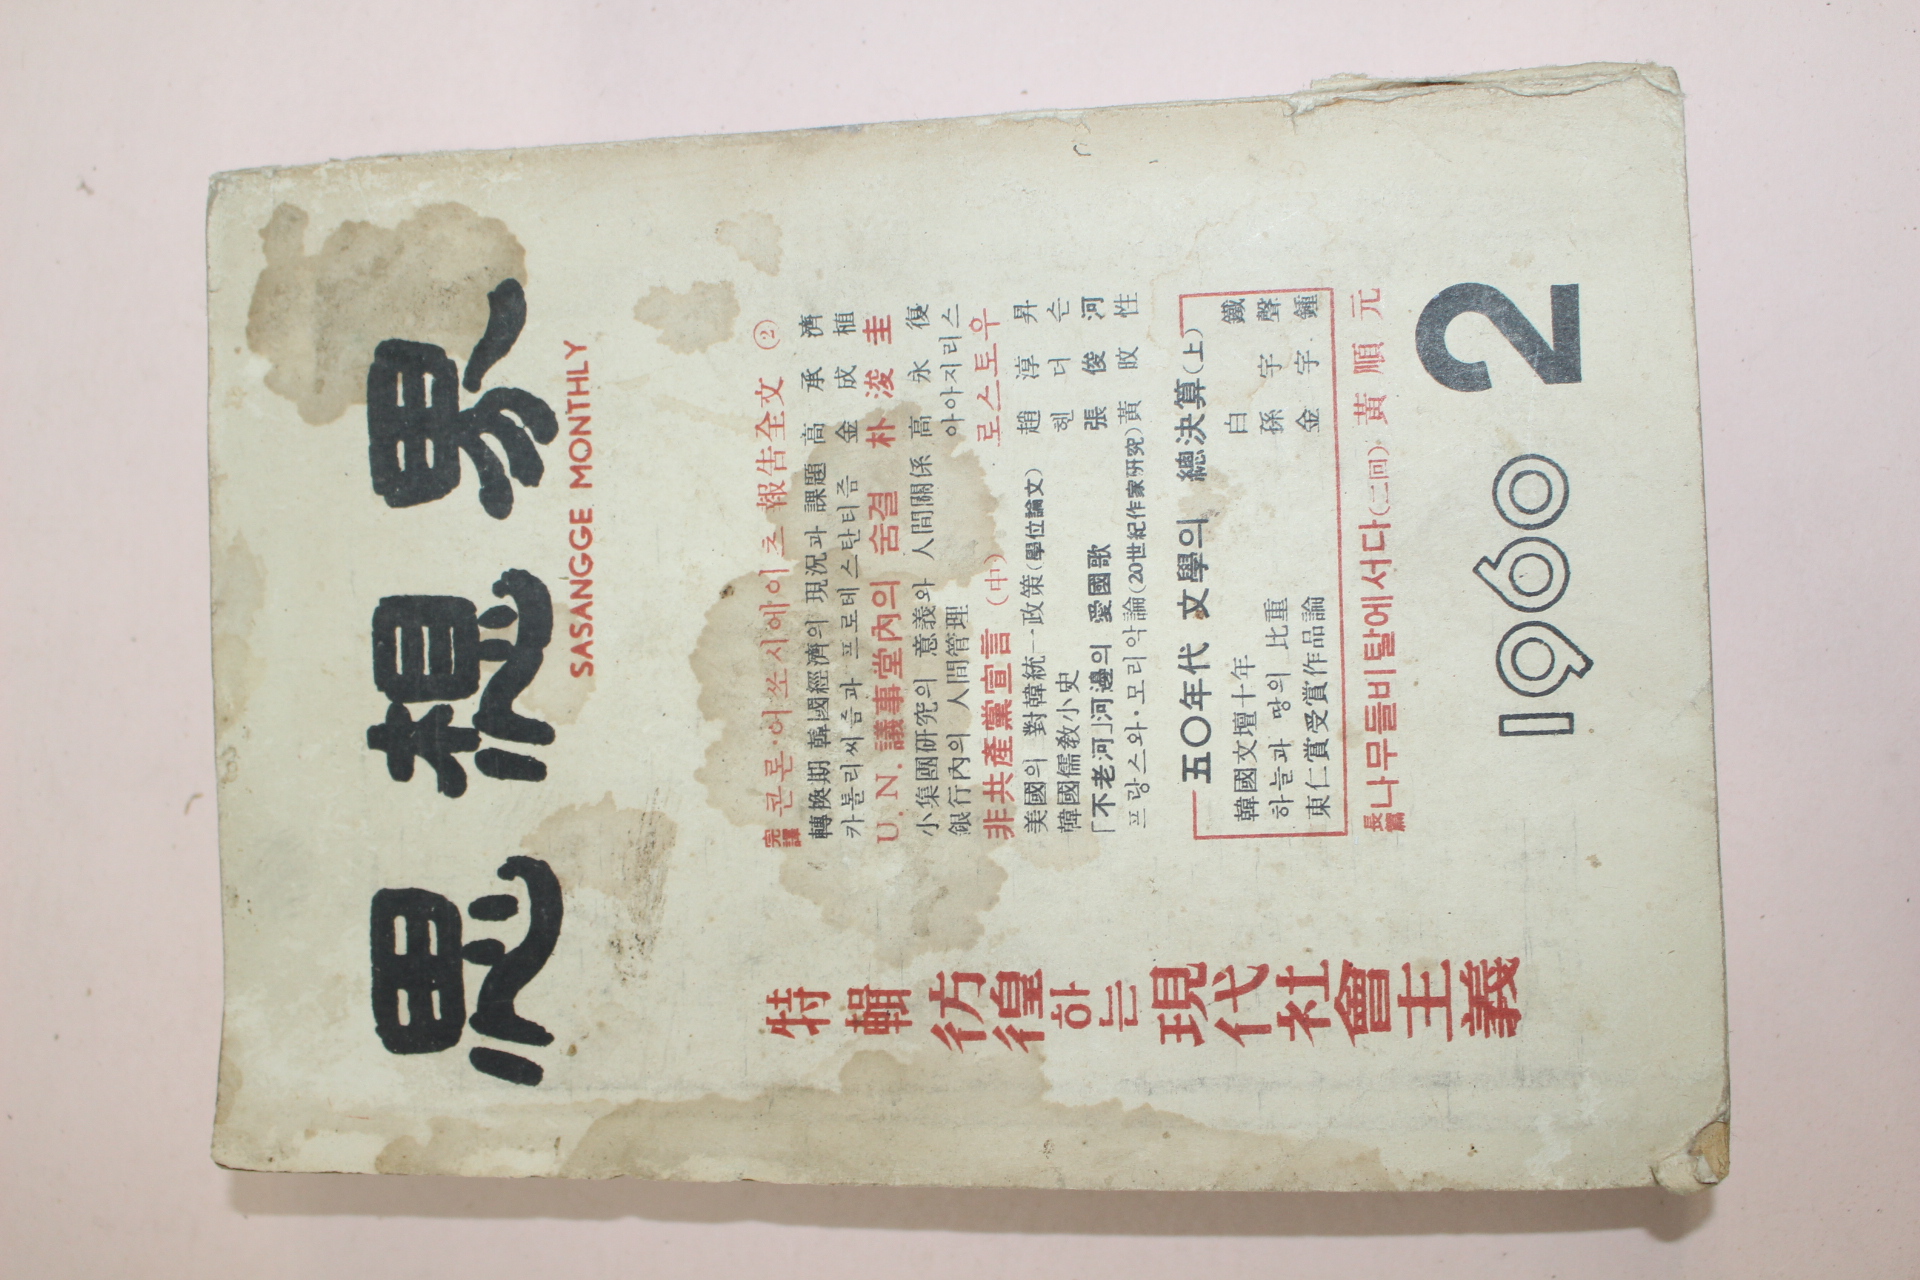 思想界
SASANGGE MONTHLY
特輯 彷徨하는 現代社會主義
完譯 콘론·어쏘시에이츠 報告全文 ②
轉換期 韓國經濟의 現況과 課題 高承濟
카톨리씨즘과 프로테스탄티즘 金成植
U.N.議事堂內의 숨결 朴浚圭
小集團硏究의 意義와 人間關係 高永復
銀行內의 人間管理 아아지리스
非共產黨宣言(中) 로스토우
美國의 對韓統一政策(學位論文) 趙淳昇
韓國儒敎小史 헨더슨
「不老河」河邊의 愛國歌 張俊河
프랑스와·모리악論(20世紀作家硏究) 黃㫘性
五〇年代 文學의 總決算(上)
韓國文壇十年 白鐵
하늘과 땅의 比重 孫宇聲
東仁賞受賞作品論 金宇鍾
長篇 나무들비탈에서다(二回) 黃順元
1960 2